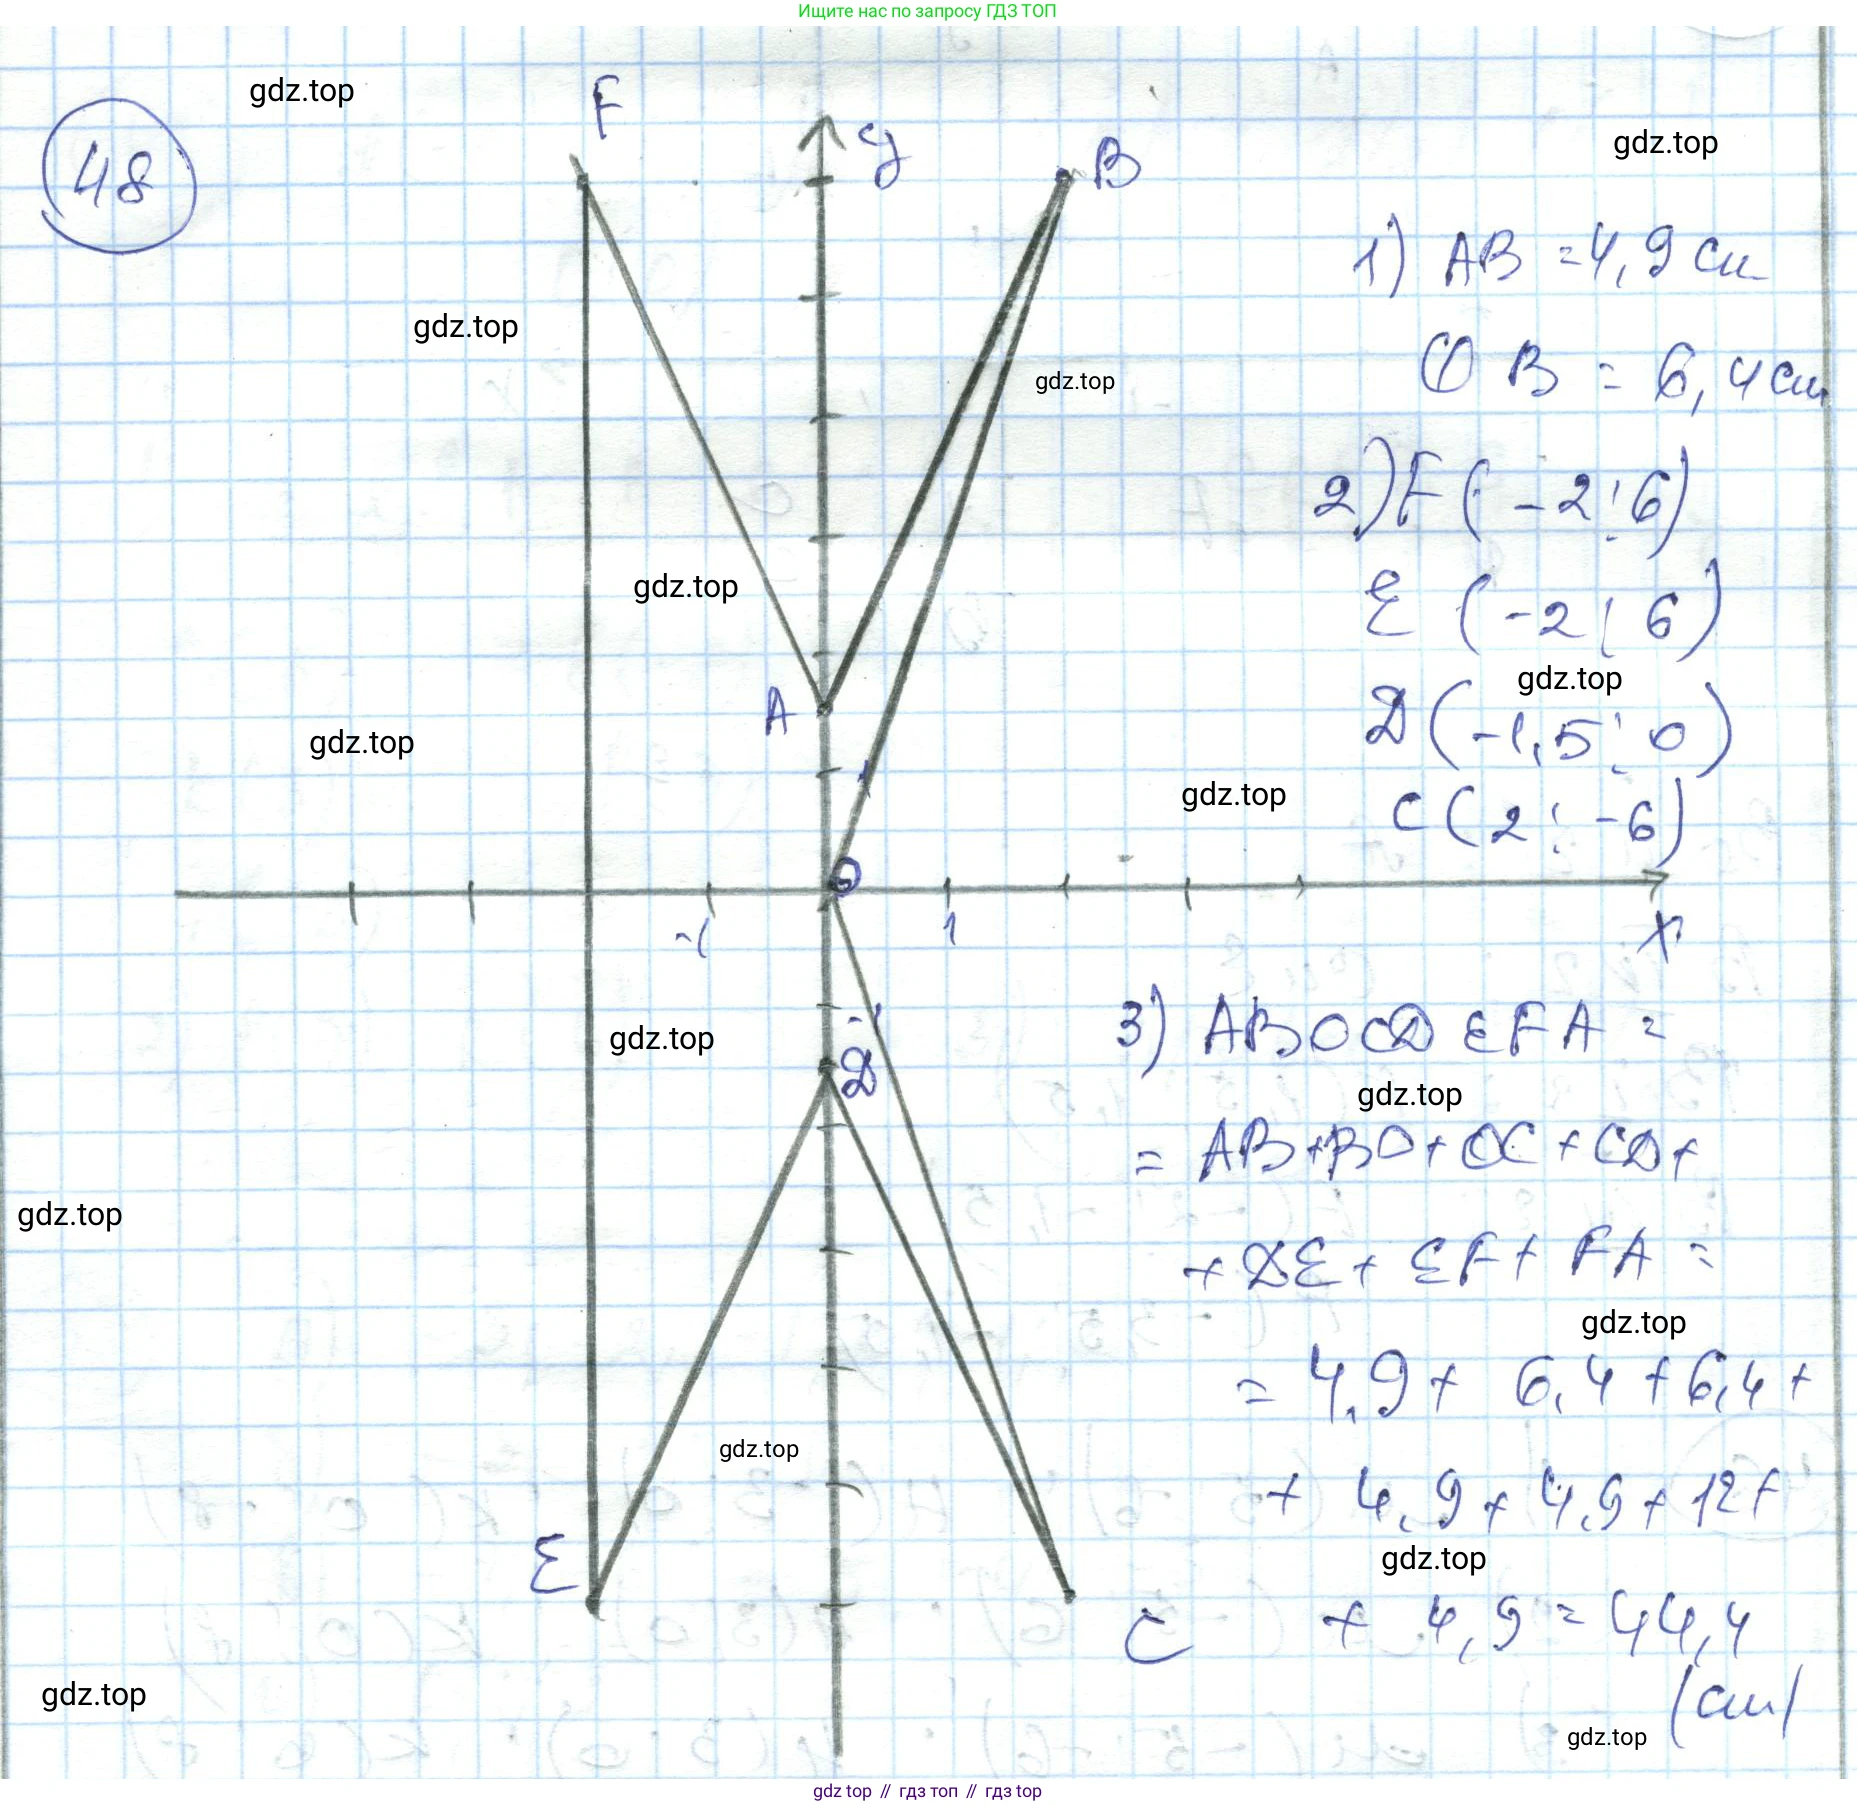 Ищите нас по запросу ГДЗ ТОП
48
gdz.top
F
y
B
gdz.top
1) AB = 4,9 см
gdz.top
OB = 6,4 см
gdz.top
2) F(-2; 6)
gdz.top
E (-2; 6)
gdz.top
A
D(-1,5; 0)
gdz.top
1
gdz.top
C(2; -6)
O
-1
1
x
gdz.top
-1
3) ABOCDEFA =
D
gdz.top
= AB+BO+OC+CD+
gdz.top
+DE+EF+FA =
gdz.top
= 4,9+ 6,4+6,4+
gdz.top
+ 4,9+4,9+12+
gdz.top
E
C
+ 4,9=44,4
gdz.top
(см)
gdz.top
gdz top // гдз топ // гдз top